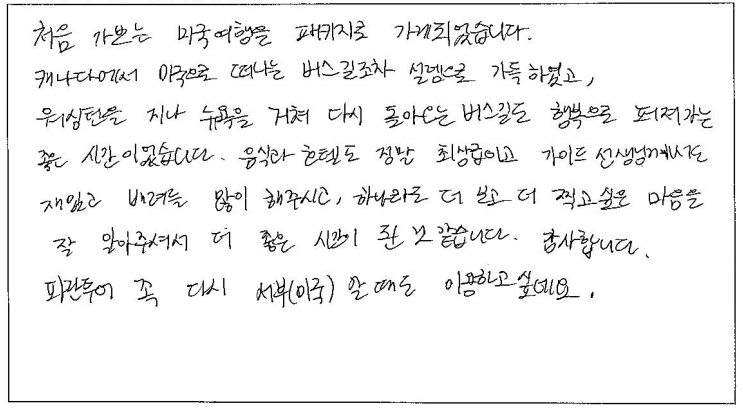 처음 가보는 미국여행을 패키지로 가게되었습니다.
캐나다에서 미국으로 떠나는 버스길조차 설렘으로 가득하였고,
워싱턴을 지나 뉴욕을 거쳐 다시 돌아오는 버스길도 행복으로 퍼져가는
좋은 시간이었습니다. 음식과 호텔도 정말 최상급이고 가이드 선생님께서도
재밌고 배려를 많이 해주시고, 하나라도 더 보고 더 찍고싶은 마음을
잘 알아주셔서 더 좋은 시간이 된 것 같습니다. 감사합니다.
파란투어 꼭 다시 서부(미국) 갈때도 이용하고싶네요.